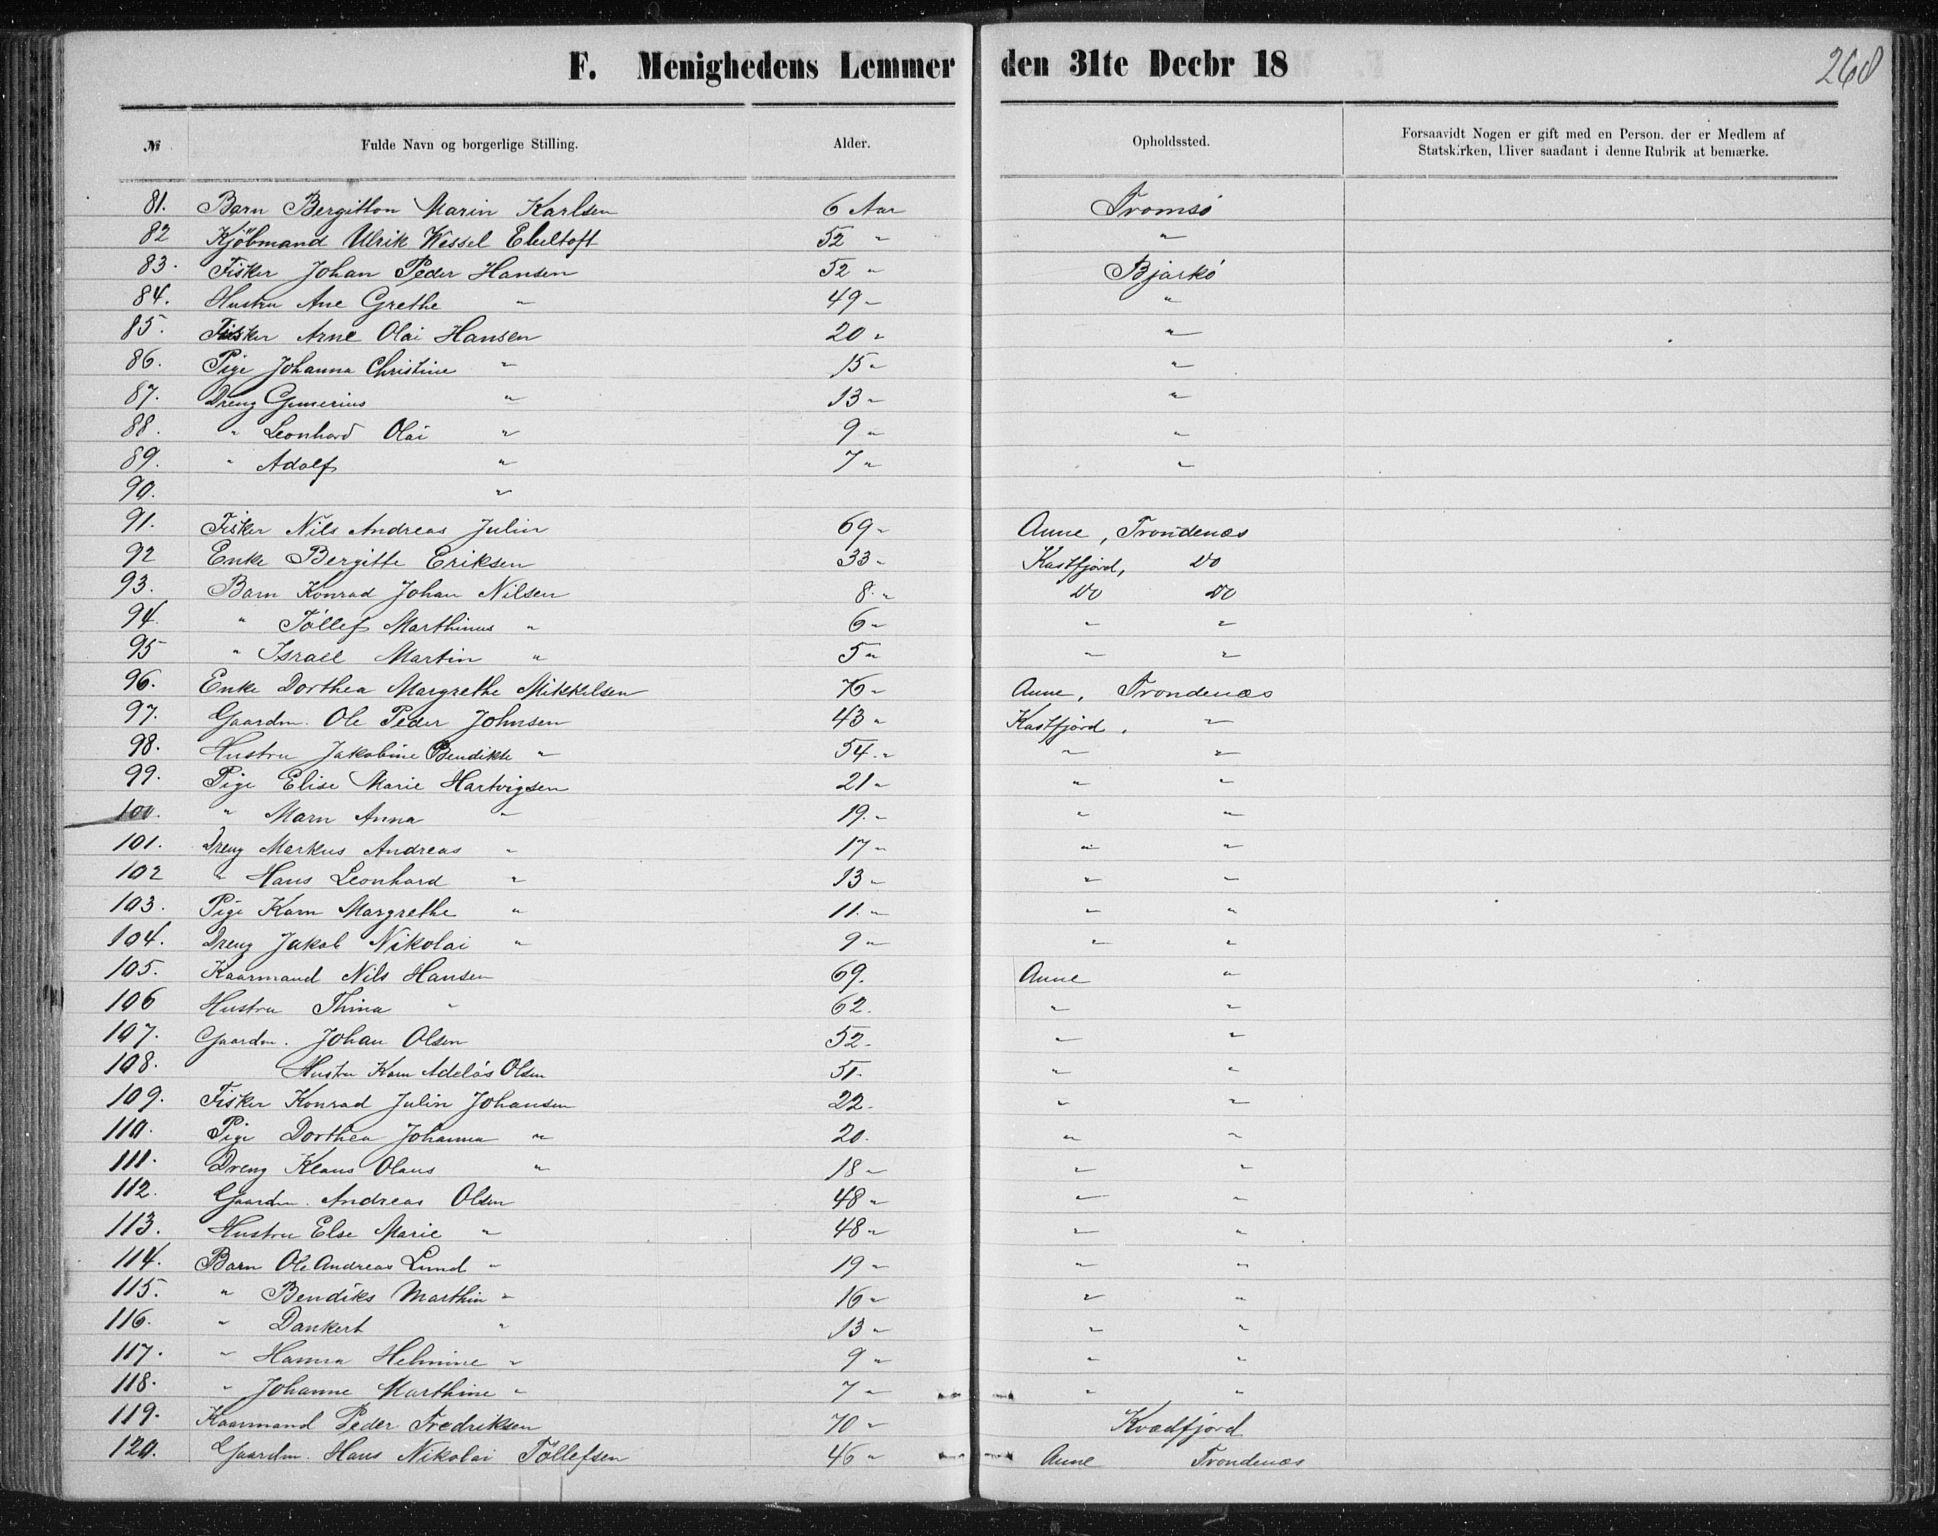 268
F. Menighedens Lemmer den 31te Decbr 18
№ Fulde Navn og borgerlige Stilling. Alder. Opholdssted. Forsaavidt Nogen er gift med en Person, der er Medlem af
Statskirken, bliver saadant i denne Rubrik at bemærke.
81. Barn Bergitton Marin Karlsen 6 Aar Tromsö
82 Kjöbmand Ulrik Wessel Ebeltoft 52 " "
83. Fisker Johan Peder Hansen 52 " Bjarkö
84. Hustru Ane Grethe " 49 " "
85. Fisker Arne Olai Hansen 20 " "
86. Pige Johanna Christine " 15 " "
87. Dreng Gunerius " 13 " "
88. " Leonhard Olai " 9 " "
89. " Adolf " 7 " "
90. "
91. Fisker Nils Andreas Julin 69 " Aune, Trondenæs
92 Enke Bergitte Eriksen 33 " Kastfjord, Do
93. Barn Konrad Johan Nilsen 8 " Do Do
94. " Töllef Marthinus " 6 " " "
95 " Israel Martin " 5 " " "
96. Enke Dorthea Margrethe Mikkelsen 76 " Aune, Trondenæs
97. Gaardm. Ole Peder Johnsen 43 " Kastfjord, "
98. Hustru Jakobine Bendikte " 54 " " "
99. Pige Elise Marie Hartvigsen 21 " " "
100. " Marn Anna " 19 " " "
101. Dreng Markus Andreas " 17 " " "
102 " Hans Leonhard " 13 " " "
103. Pige Karn Margrethe " 11 " " "
104. Dreng Jakob Nikolai " 9 " " "
105. Kaarmand Nils Hansen 69. Aune "
106 Hustru Thina " 62. " "
107. Gaardm. Johan Olsen 52. " "
108. Hustru Karn Adelös Olsen 51. " "
109. Fisker Konrad Julin Johansen 22. " "
110. Pige Dorthea Johanna " 20. " "
111. Dreng Klaus Olaus " 18 " " "
112. Gaardm. Andreas Olsen 48 " " "
113. Hustru Else Marie " 48 " " "
114. Barn Ole Andreas Lund " 19 " " "
115. " Bendiks Marthin " 16 " " "
116. " Dankert " 13 " " "
117. " Hanna Helmine " 9 " " "
118. " Johanne Marthine " 7 " " "
119. Kaarmand Peder Fredriksen 70 " Kvædfjord
120. Gaardm. Hans Nikolai Töllefsen 46 " Aune Trondenæs